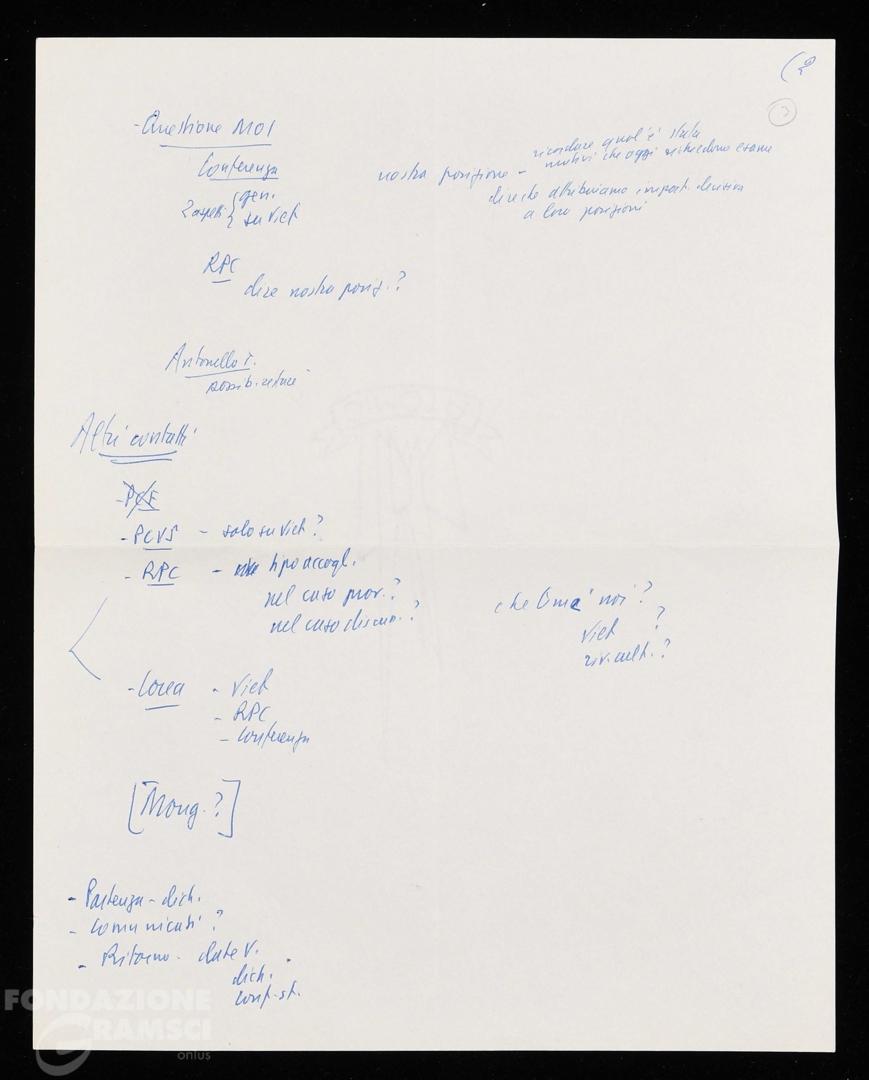 3
- Questione MOI
Conferenza
2 aspetti { gen.
su Viet
nostra posizione - ricordare qual'è stata
motivi che oggi richiedono esame
dire che attribuiamo import. decisiva
a loro posizioni
RPC
dire nostra posiz.?
Antonello T.
Altri contatti
- PCF
- PCUS - solo su Viet?
- RPC - tipo accogl.
nel caso prov.?
nel caso discuss.?
che noi?
Viet ?
riv. cult.?
- Corea - Viet
- RPC
- Conferenza
[Mong.?]
- Partenza - dich.
- Comunicati?
- Ritorno - date V.
dich.
conf. st.
FONDAZIONE
GRAMSCI
onlus